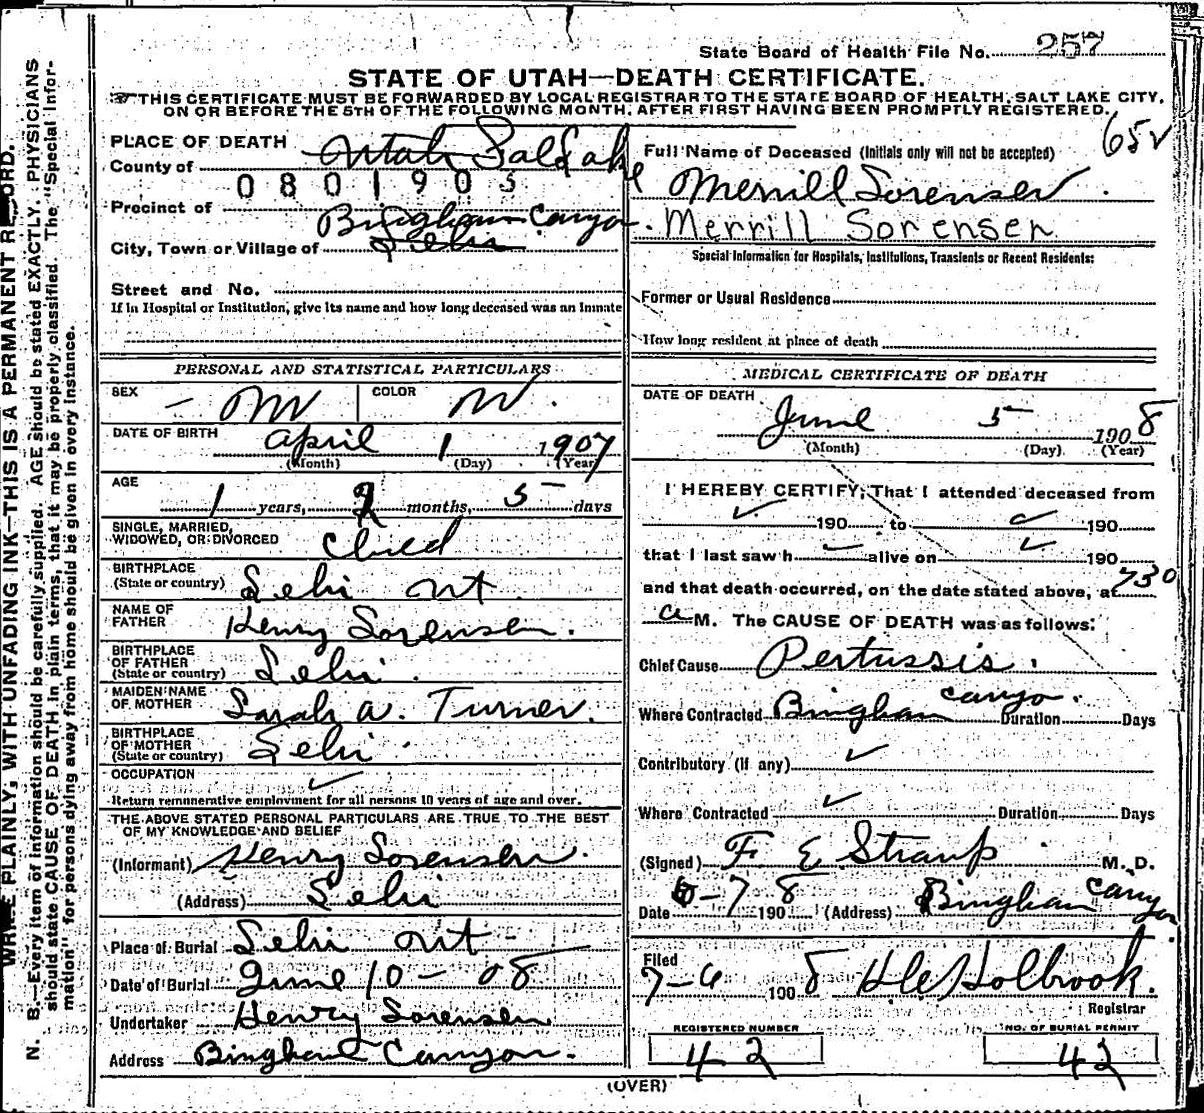 State Board of Health File No. 257
STATE OF UTAH—DEATH CERTIFICATE.
THIS CERTIFICATE MUST BE FORWARDED BY LOCAL REGISTRAR TO THE STATE BOARD OF HEALTH, SALT LAKE CITY,
ON OR BEFORE THE 5TH OF THE FOLLOWING MONTH, AFTER FIRST HAVING BEEN PROMPTLY REGISTERED.
N. B.—Every item of information should be carefully supplied. AGE should be stated EXACTLY. PHYSICIANS
should state CAUSE OF DEATH in plain terms, that it may be properly classified. The "Special Infor-
mation" for persons dying away from home should be given in every instance.
PLAINLY, WITH UNFADING INK—THIS IS A PERMANENT
PLACE OF DEATH
County of Utah Salt Lake
0801903
Precinct of
Bingham Canyon.
City, Town or Village of Lehi
Street and No.
If in Hospital or Institution, give its name and how long deceased was an Inmate
65
Full Name of Deceased (Initials only will not be accepted)
Merrill Sorensen.
Merrill Sorensen
Special Information for Hospitals, Institutions, Transients or Recent Residents:
Former or Usual Residence
How long resident at place of death
PERSONAL AND STATISTICAL PARTICULARS
SEX M COLOR W.
DATE OF BIRTH April 1 1907
(Month) (Day) (Year)
AGE
1 years, 2 months, 5 days
SINGLE, MARRIED,
WIDOWED, OR DIVORCED Child
BIRTHPLACE
(State or country) Lehi Ut.
NAME OF
FATHER Henry Sorensen.
BIRTHPLACE
OF FATHER
(State or country) Lehi.
MAIDEN NAME
OF MOTHER Sarah A. Turner.
BIRTHPLACE
OF MOTHER
(State or country) Lehi.
OCCUPATION
Return remunerative employment for all persons 10 years of age and over.
THE ABOVE STATED PERSONAL PARTICULARS ARE TRUE TO THE BEST
OF MY KNOWLEDGE AND BELIEF
(Informant) Henry Sorensen.
(Address) Lehi
Place of Burial Lehi Ut
Date of Burial June 10 - 08
Undertaker Henry Sorensen
Address Bingham Canyon.
MEDICAL CERTIFICATE OF DEATH
DATE OF DEATH
June 5 1908
(Month) (Day) (Year)
I HEREBY CERTIFY, That I attended deceased from
190 to 190
that I last saw h alive on 190
and that death occurred, on the date stated above, at 730
a M. The CAUSE OF DEATH was as follows:
Chief Cause Pertussis.
Where Contracted Bingham Canyon. Duration Days
Contributory (if any)
Where Contracted Duration Days
(Signed) F E Straup M. D.
Date 6-7 1908 (Address) Bingham Canyon
Filed
7-6 1908 Holbrook.
Registrar
REGISTERED NUMBER
42
NO. OF BURIAL PERMIT
42
(OVER)